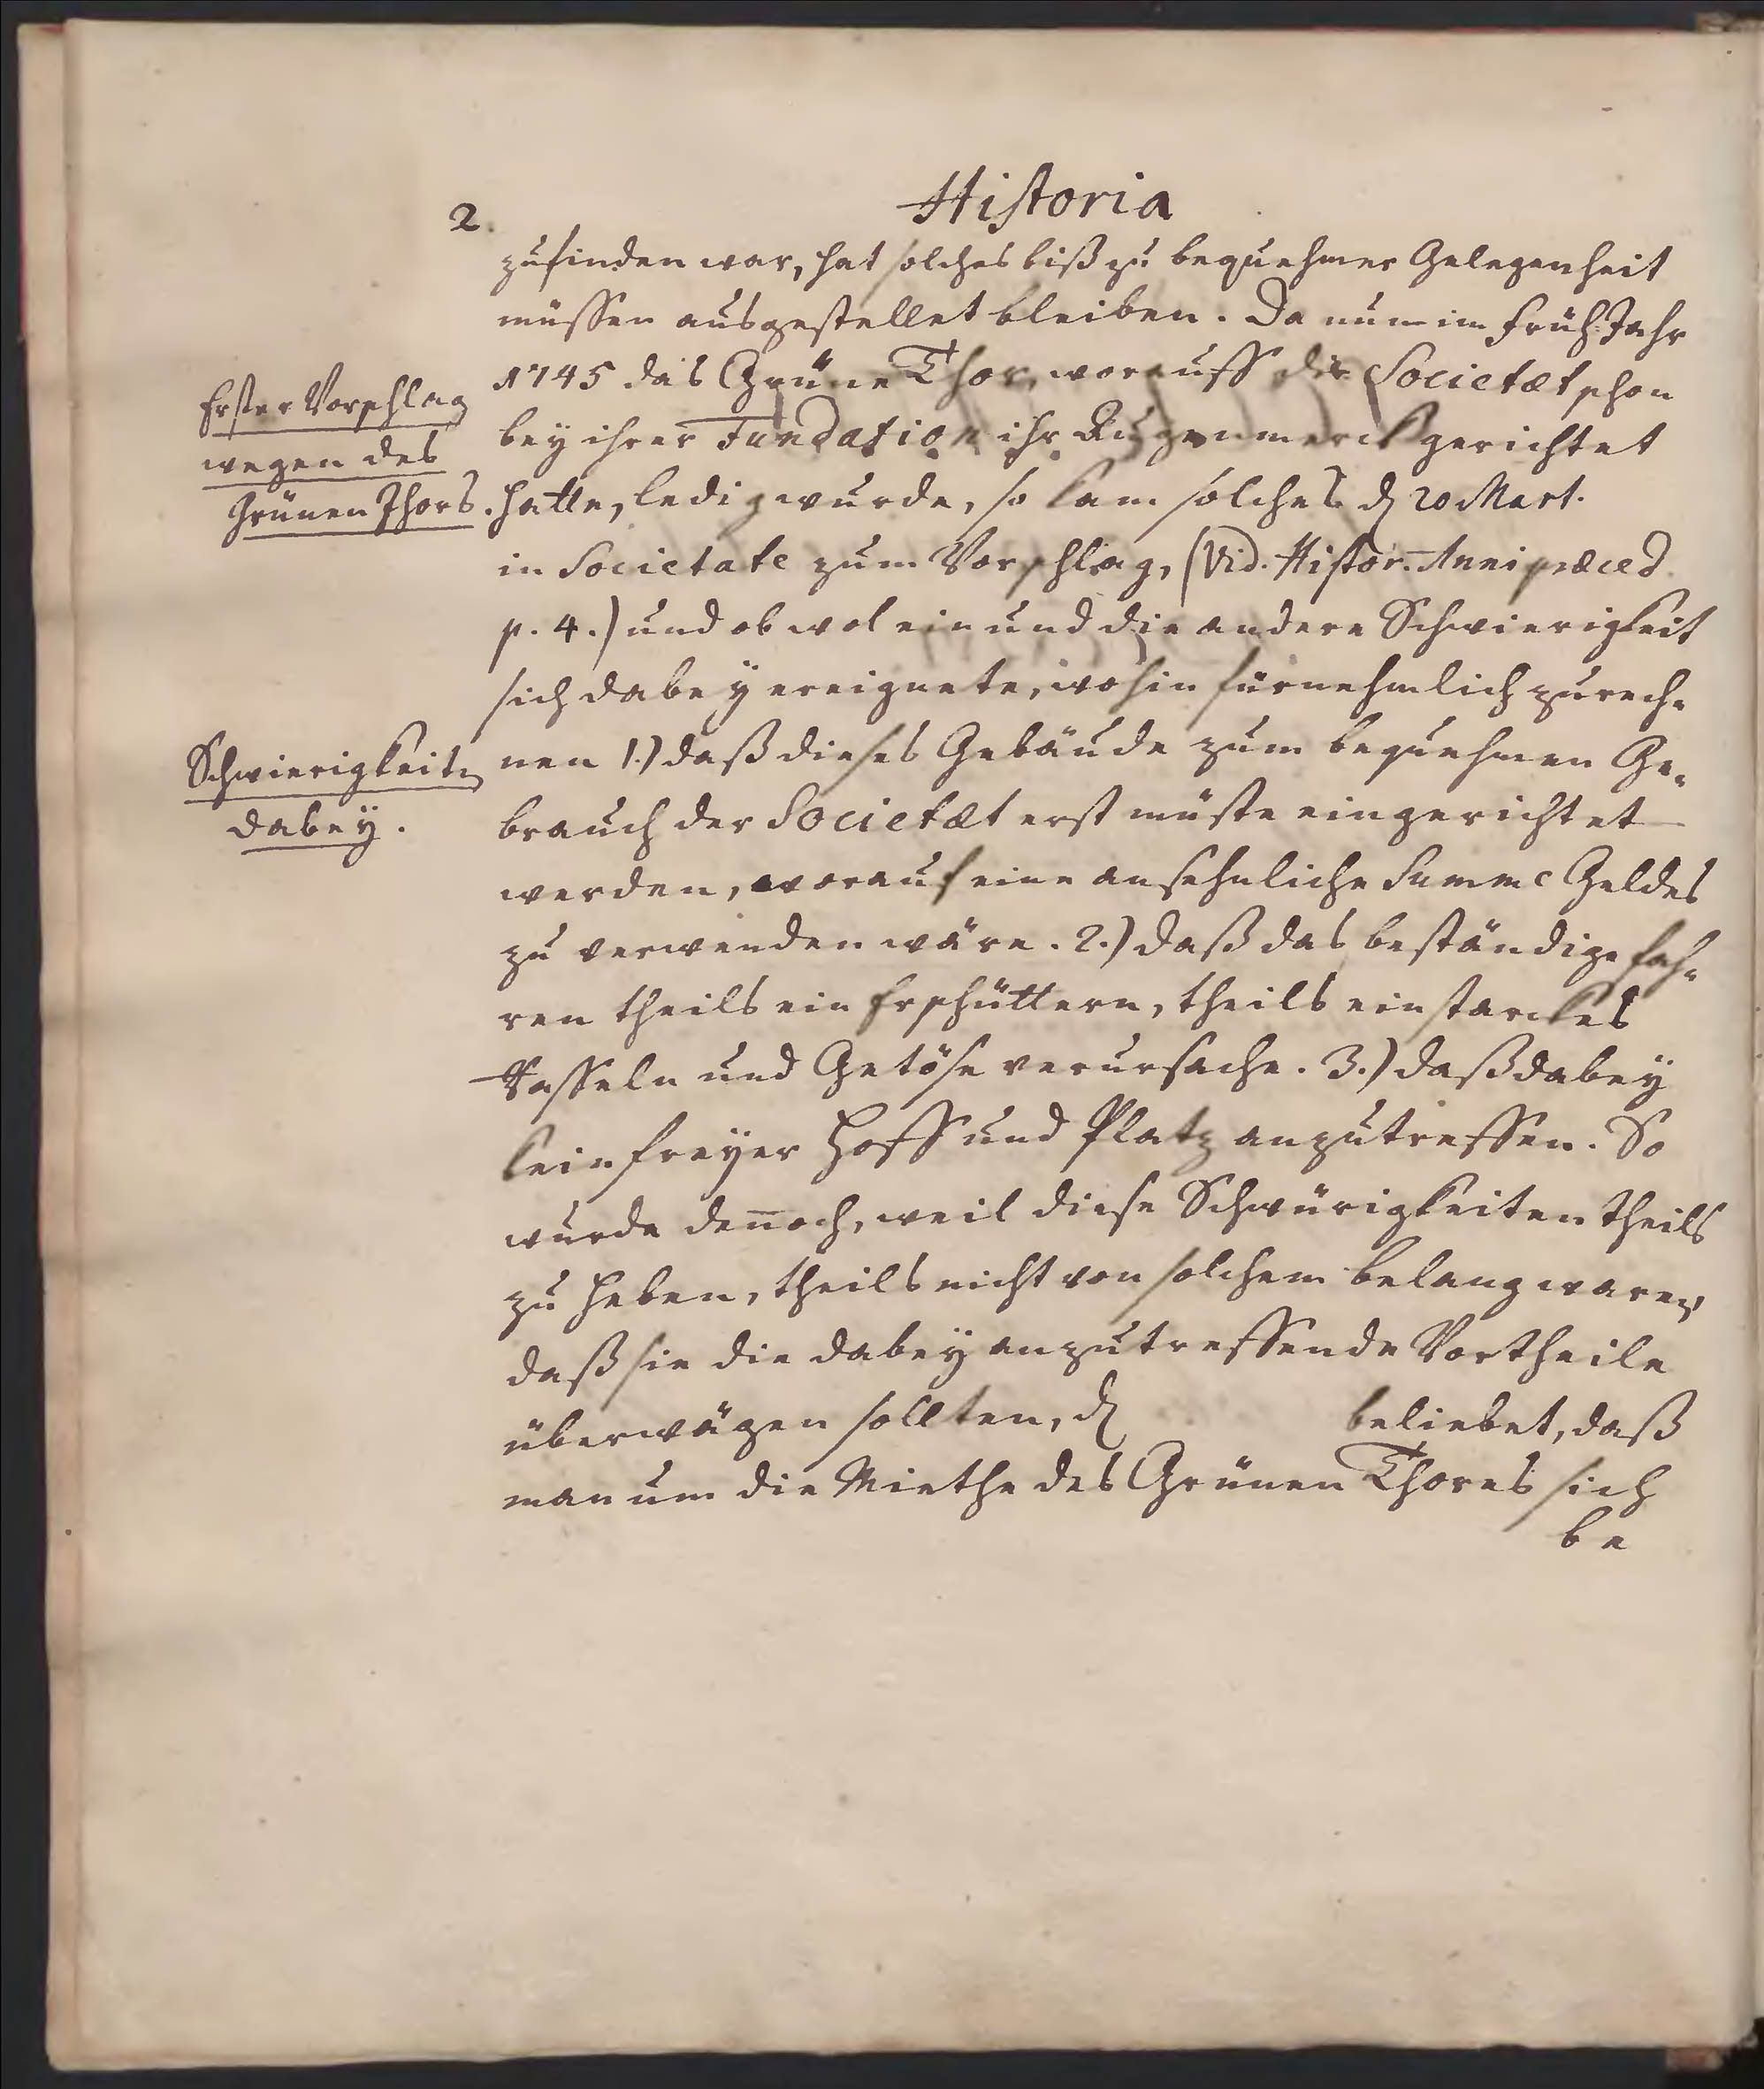 2.
Historia
zufinden war, hat solches biß zu bequehmer Gelegenheit
müssen ausgestellet bleiben. Da nun im Früh-Jahr
Erster Vorschlag
wegen des
Grünen Thors.
1745 das Grüne Thor, worauff die Societæt schon
bey ihrer Fundation ihr Augenmerck gerichtet
hatte, ledig wurde, so kam solches d 20 Mart.
in Societate zum Vorschlag, (Vid. Histor. Anni præced.
p. 4.) und ob wol ein und die andere Schwierigkeit
sich dabey ereignete, wohin fürnehmlich zurech-
Schwierigkeiten
dabey.
nen 1.) daß dieses Gebäude zum bequehmen Ge-
brauch der Societæt erst müste eingerichtet
werden, worauf eine ansehnliche Summe Geldes
zu verwenden wäre. 2.) daß das beständige Fah-
ren theils ein Erschüttern, theils ein starckes
Rasseln und Getöse verursache. 3.) daß dabey
kein freyer Hoff und Platz anzutreffen. So
wurde den̄och, weil diese Schwürigkeiten theils
zu heben, theils nicht von solchem belang waren,
daß sie die dabey anzutreffende Vortheile
überwägen sollten, d beliebet, daß
man um die Miethe des Grünen Thores sich
be